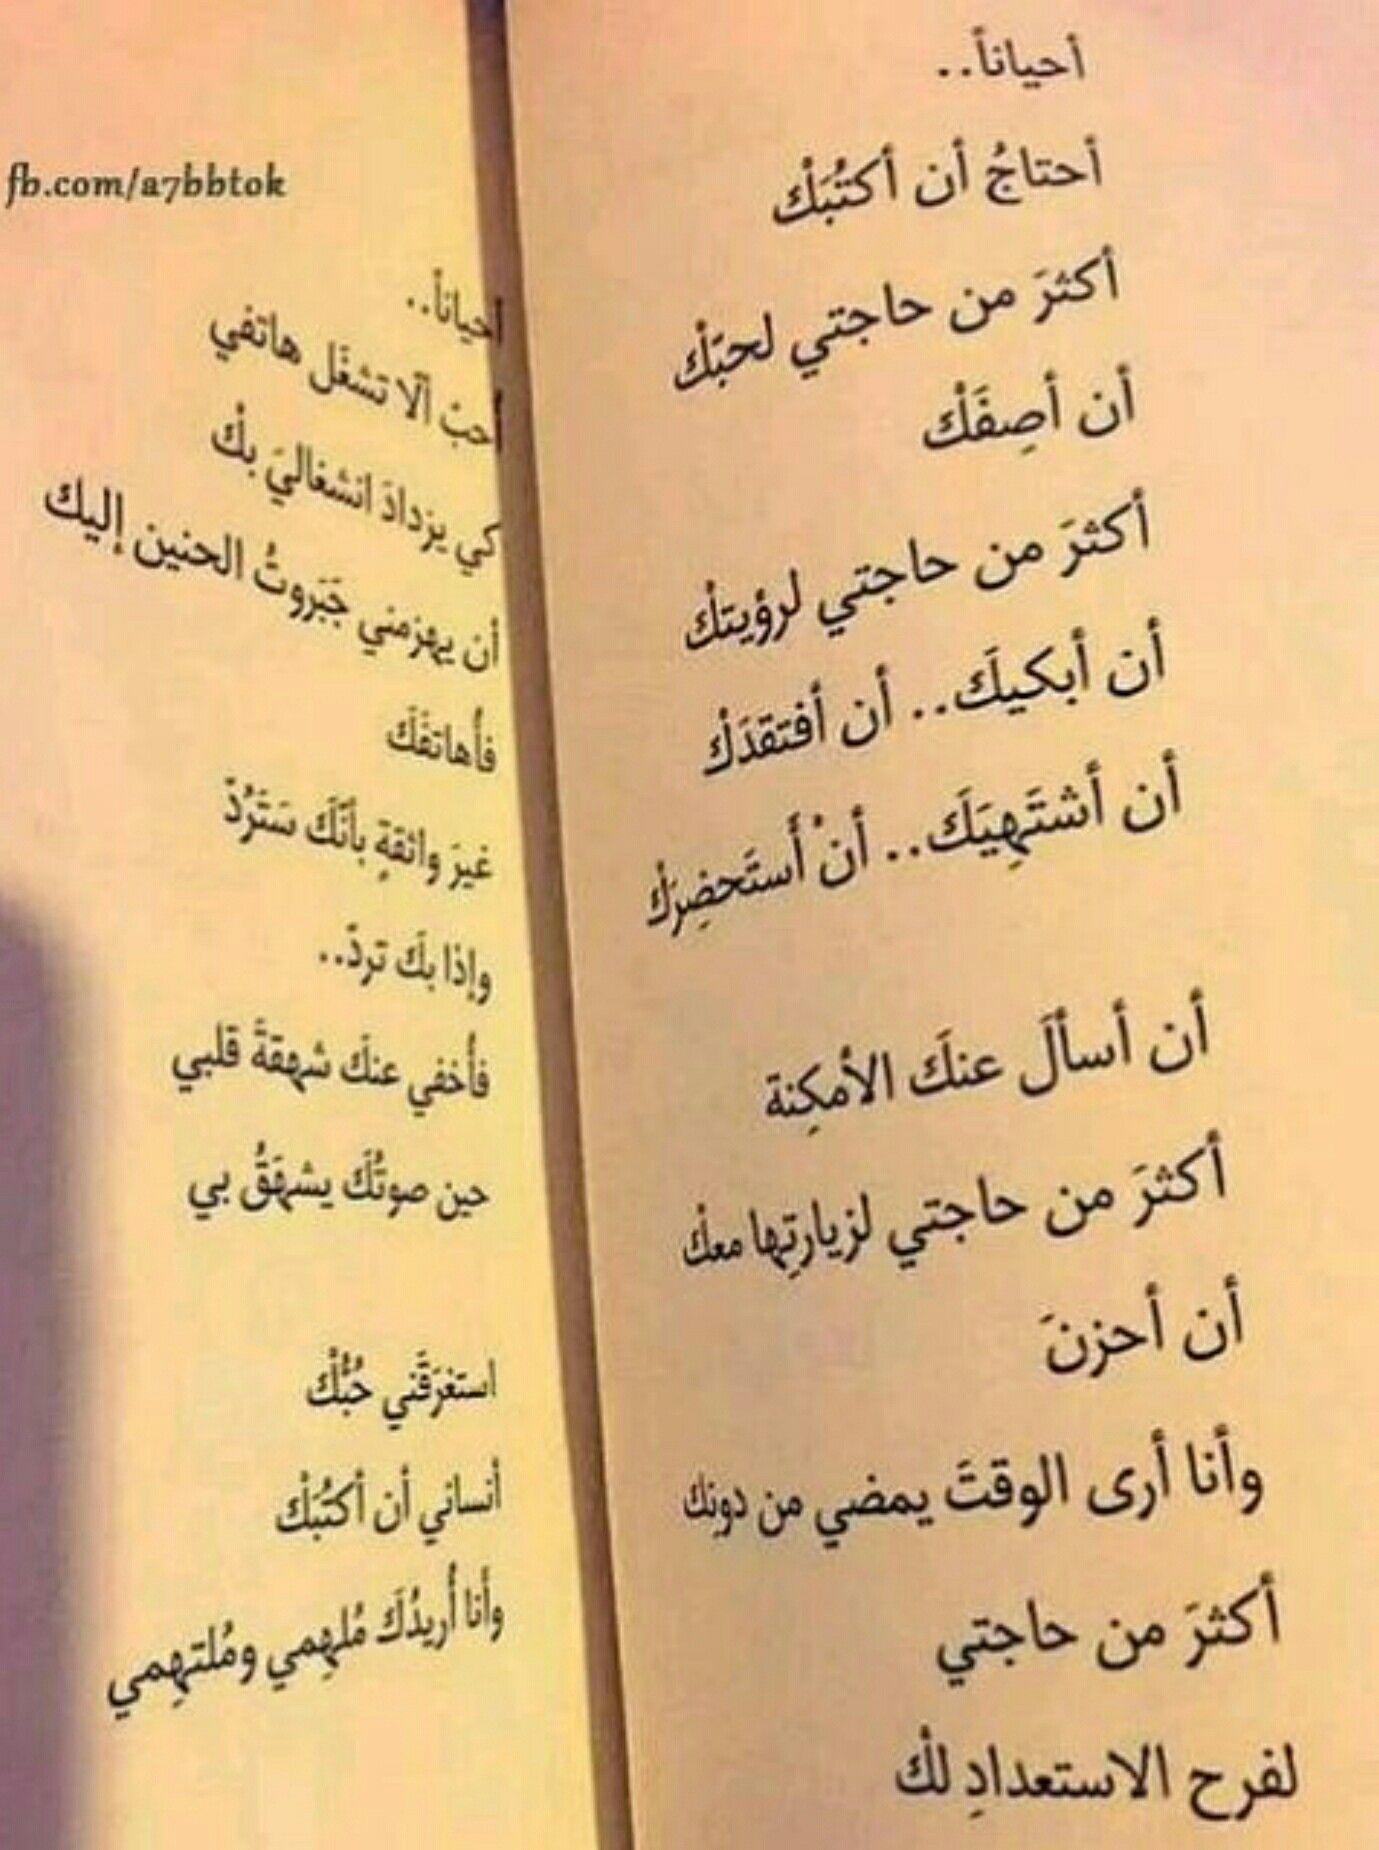 أحياناً..
أحتاجُ أن أكتُبَكْ
أكثرَ من حاجتي لحبّكْ
أن أصِفَكْ
أكثرَ من حاجتي لرؤيتكْ
أن أبكيكَ.. أن أفتقدَكْ
أن أشتَهِيَكَ.. أنْ أَستَحضِرَكْ
أن أسألَ عنكَ الأمكِنة
أكثرَ من حاجتي لزيارتِها معكْ
أن أحزنَ
وأنا أرى الوقتَ يمضي من دونِك
أكثرَ من حاجتي
لفرح الاستعدادِ لكْ
fb.com/a7bbtok
أحياناً..
أحبّ ألّا تشغَل هاتفي
كي يزدادَ انشغاليَ بكْ
أن يهزمني جَبَروتُ الحنين إليك
فأُهاتفَكَ
غيرَ واثقةٍ بأنّكَ سَتَرُدّ
وإذا بكَ تردّ..
فأُخفي عنكَ شهقةَ قلبي
حين صوتُكَ يشهَقُ بي
استغرَقَني حُبُّكْ
أنساني أن أكتُبَكْ
وأنا أُريدُكَ مُلهِمي ومُلتهِمي